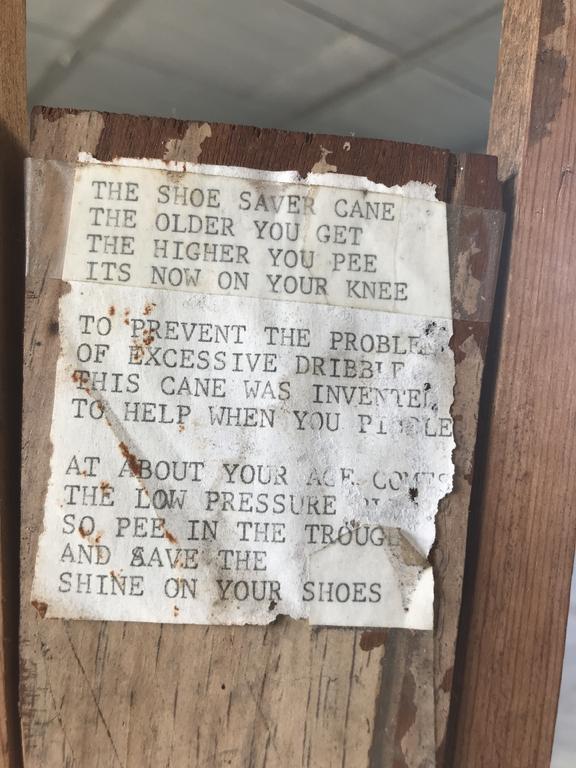 THE SHOE SAVER CANE
THE OLDER YOU GET
THE HIGHER YOU PEE
ITS NOW ON YOUR KNEE
TO PREVENT THE PROBLE
OF EXCESSIVE DRIBBLE
THIS CANE WAS INVENTED
TO HELP WHEN YOU PIDDLE
AT ABOUT YOUR AGE COMES
THE LOW PRESSURE
SO PEE IN THE TROUGH
AND SAVE THE
SHINE ON YOUR SHOES